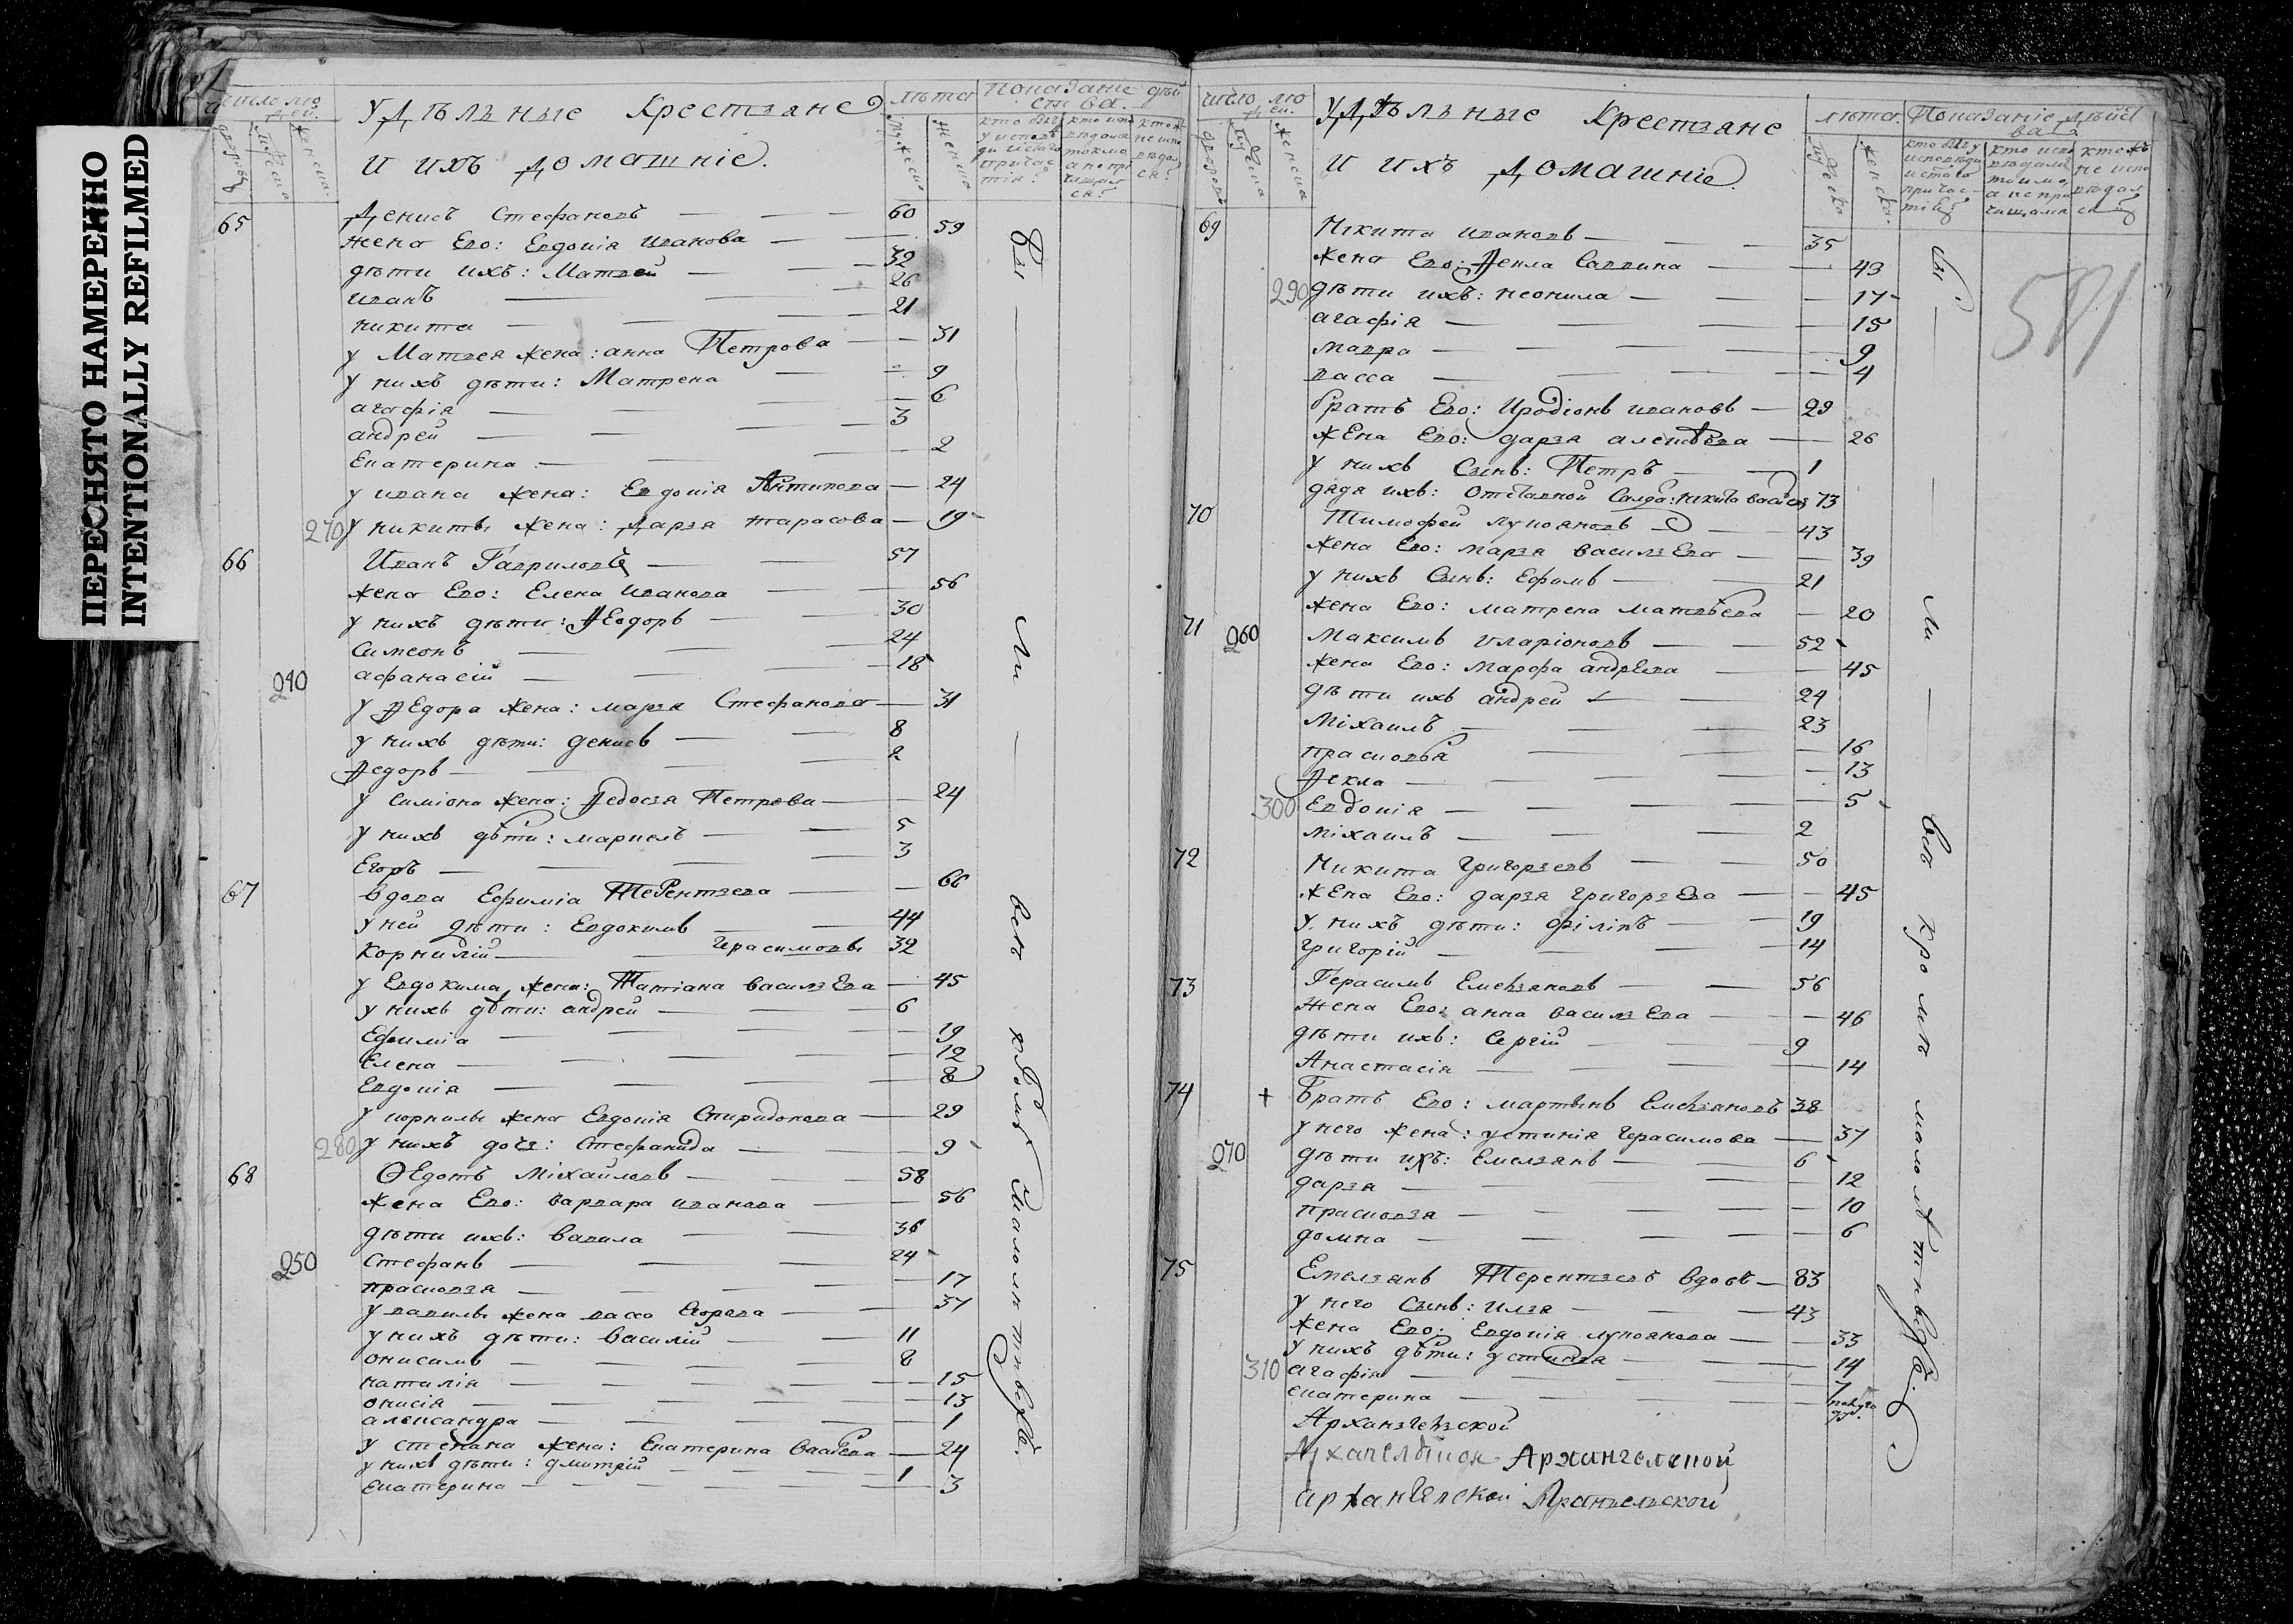 ПЕРЕСНЯТО НАМЕРЕННО
INTENTIONALLY REFILMED
Число людей.
Удѣльные Крестьяне
и ихъ домашніе.
лѣта
Показаніе дѣйства.
65 Денисъ Стефановъ — 60
жена Ево: Евдокія Иванова — 59
дѣти ихъ: Матвей — 32
иванъ — 26
никита — 21
у Матвея жена: анна Петрова — 31
у нихъ дѣти: Матрена — 9
агафія — 6
андрей — 3
Екатерина — 2
у ивана жена: Евдокія Антипова — 24
270 у никиты жена: Дарья тарасова — 19
66 Иванъ Гавриловъ — 57
жена Ево: Елена Иванова — 56
у нихъ дѣти: Ѳеодоръ — 30
Симеонъ — 24
240 афанасій — 18
у Ѳедора жена: марья Стефанова — 31
у нихъ дѣти: денисъ — 8
Ѳедоръ — 2
у симіона жена: Ѳедосья Петрова — 24
у нихъ дѣти: маркелъ — 5
Егоръ — 3
67 вдова Ефимія Терентьева — 66
у ней дѣти: Евдокимъ — 44
Корнилій — Герасимовы 32
у Евдокима жена: Татіана васильЕва — 45
у нихъ дѣти: андрей — 6
Ефимія — 19
Елена — 12
Евдокія — 8
у корнилы жена Евдокія Спиридонова — 29
280 у нихъ дочь: Стефанида — 9
68 Ѳедотъ Міхайловъ — 58
жена Ево: варвара иванова — 56
дѣти ихъ: вавила — 36
250 Стефанъ — 24
прасковья — 17
у вавилы жена васса Егорева — 37
у нихъ дѣти: василій — 11
онисимъ — 8
наталія — 15
онисія — 13
александра — 1
у степана жена: Екатерина — 24
у нихъ дѣти: дмитрій — 1
Екатерина — 3
вы — ли — всѣ кромѣ малолѣтныхъ.
Число людей.
Удѣльные Крестьяне
и ихъ Домашніе.
лѣта.
Показаніе дѣйства
581
69 Никита ивановъ — 35
жена Ево: Ѳекла Саввина — 43
290 дѣти ихъ: неонила — 17
агафія — 15
мавра — 9
васса — 4
братъ Ево: Иродіонъ ивановъ — 29
жЕна Ево: дарья алексѣЕва — 26
у нихъ Сынъ: Петръ — 1
дядя ихъ: Отставной Салда: никита 73
70 Тимофей лукояновъ — 43
жена Ево: марья васильЕва — 39
у нихъ Сынъ: Ефимъ — 21
жена Ево: матрена матвѣева — 20
71 260 Максимъ иларіоновъ — 52
жена Ево: марфа андрЕева — 45
дѣти ихъ андрей — 24
Міхаилъ — 23
прасковья — 16
Ѳекла — 13
300 Евдокія — 5
міхаилъ — 2
72 Никита григорьевъ — 50
жЕна Ево: дарья григорьЕва — 45
у нихъ дѣти: філіпъ — 19
григорій — 14
73 Герасимъ Емельяновъ — 56
жена Ево: анна васильЕва — 46
дѣти ихъ: Сергій — 9
Анастасія — 14
74 + Братъ Ево: мартынъ Емельяновъ 38
у него жена: устинія Герасимова — 37
270 дѣти ихъ: Емельянъ — 6
дарья — 12
прасковья — 10
домна — 6
75 Емельянъ Терентьевъ вдовъ — 83
у него Сынъ: илья — 43
жена Ево: Евдокія лукоянова — 33
у нихъ дѣти: устинья — 14
310 агафія — 7
екатерина —
Архангельской
Архангельской
архангелской
вы — ли — всѣ кромѣ малолѣтныхъ.